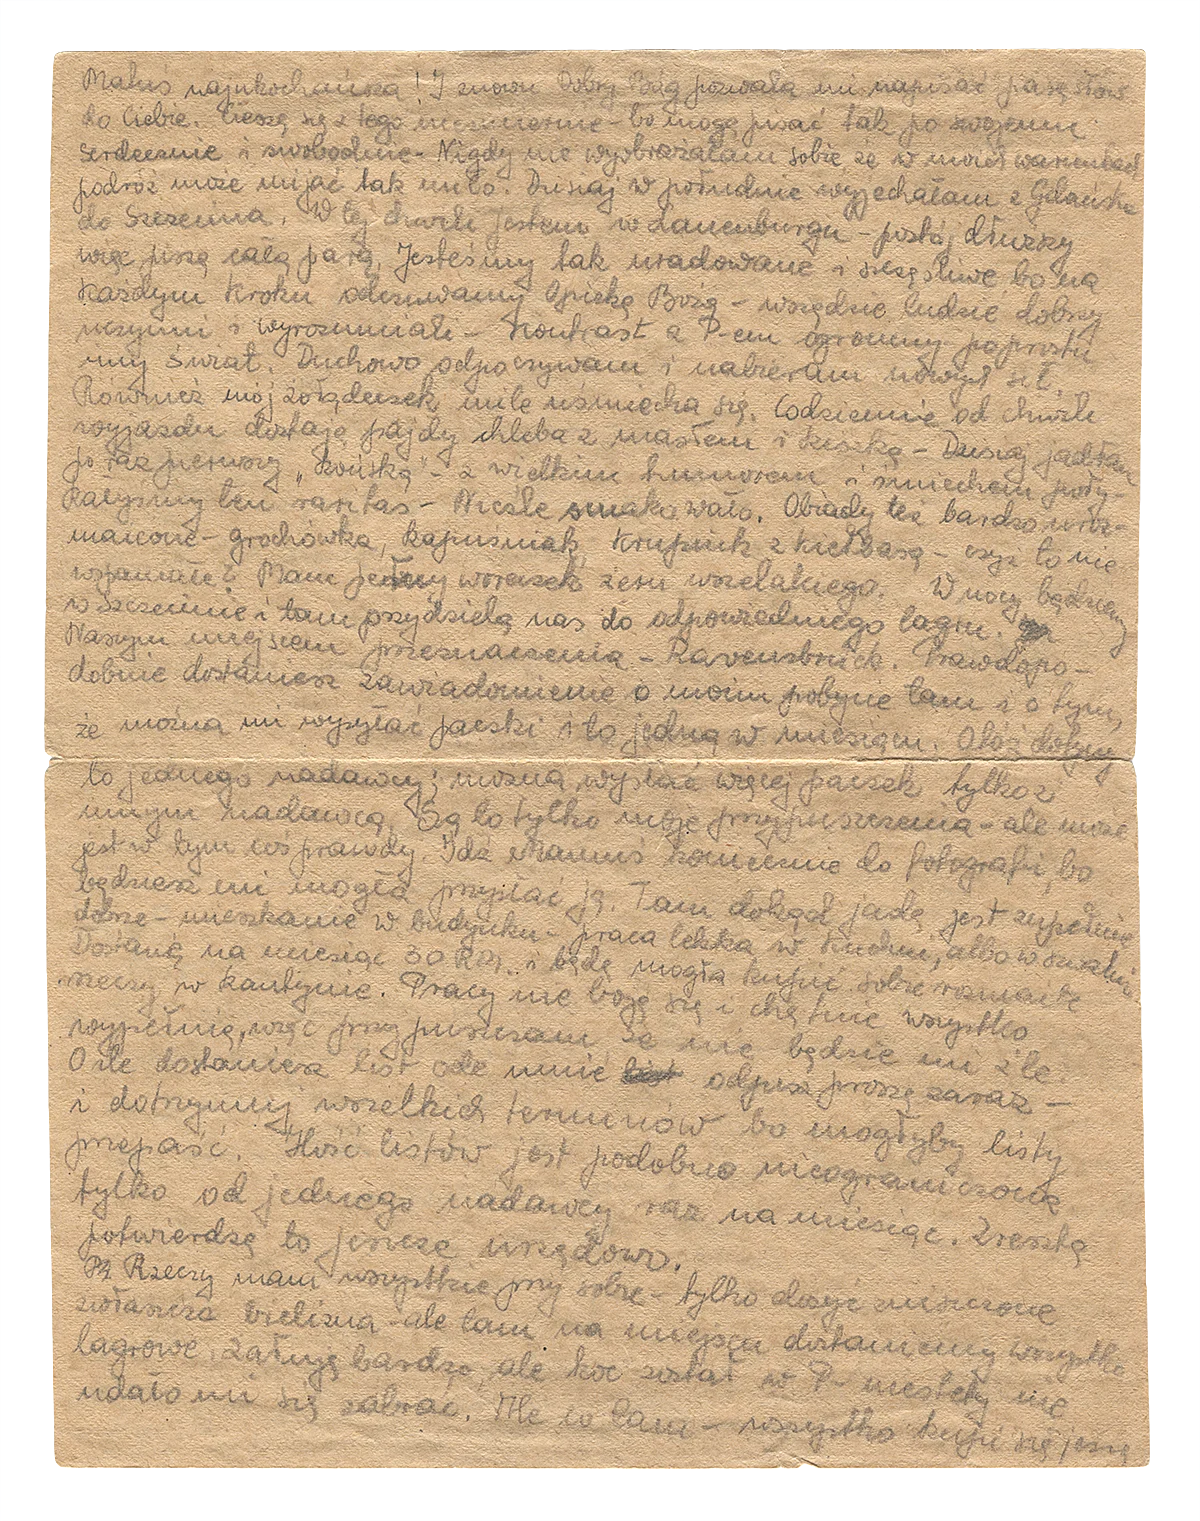 Matuś najukochańsza! I znowu Dobry Bóg pozwala mi napisać parę słów
do Ciebie. Cieszę się z tego niezmiernie – bo mogę pisać tak po swojemu
serdecznie i swobodnie – Nigdy nie wyobrażałam sobie że w moich warunkach
podróż może mijać tak miło. Dzisiaj w południe wyjechałam z Gdańska
do Szczecina. W tej chwili jestem w Lauenburgu – postój dłuższy
więc piszę całą parą. Jesteśmy tak uradowane i szczęśliwe bo na
każdym kroku odczuwamy Opiekę Bożą – wszędzie ludzie dobrzy
uczynni i wyrozumiali – Kontrast z P-em ogromny poprostu
inny świat. Duchowo odpoczywam i nabieram nowych sił.
Również mój żołądeczek mile uśmiecha się. Codziennie od chwili
wyjazdu dostaję pajdy chleba z masłem i kiszką – Dzisiaj jadłam
po raz pierwszy „końską" – z wielkim humorem i śmiechem poły-
kałyśmy ten raritas – Nieźle smakowało. Obiady też bardzo uroz-
maicone – grochówka, kapuśniak, krupnik z kiełbasą – czyż to nie
wspaniałe? Mam pełny woreczek żeru wszelakiego. W nocy będziemy
w Szczecinie i tam przydzielą nas do odpowiedniego lagru.
Naszym miejscem przeznaczenia – Ravensbrück. Prawdopo-
dobnie dostaniesz zawiadomienie o moim pobycie tam i o tym,
że można mi wysyłać paczki i to jedną w miesiącu. Otóż dotyczy
to jednego nadawcy; można wysłać więcej paczek tylko z
innym nadawcą. Są to tylko moje przypuszczenia – ale może
jest w tym coś prawdy. Idź Mamuś koniecznie do fotografii, bo
będziesz mi mogła przysłać ją. Tam dokąd jadę jest zupełnie
dobrze – mieszkanie w budynku – praca lekka w kuchni, albo w szwalni.
Dostanę na miesiąc 30 RM. i będę mogła kupić sobie rozmaite
rzeczy w kantynie. Pracy nie boję się i chętnie wszystko
wypełnię, więc przypuszczam że nie będzie mi źle
O ile dostaniesz list ode mnie odpisz, proszę zaraz –
i dotrzymuj wszelkich terminów bo mogłyby listy
przepaść. Ilość listów jest podobno nieograniczona
tylko od jednego nadawcy raz na miesiąc. Zresztą
potwierdzę to jeszcze urzędowo.
Rzeczy mam wszystkie przy sobie – tylko dosyć zniszczone
zwłaszcza bielizna – ale tam na miejscu dostaniemy wszystko
lagrowe. Żałuję bardzo, ale koc został w P – niestety nie
udało mi się zabrać. Ale co tam – wszystko kupi się jeszcze